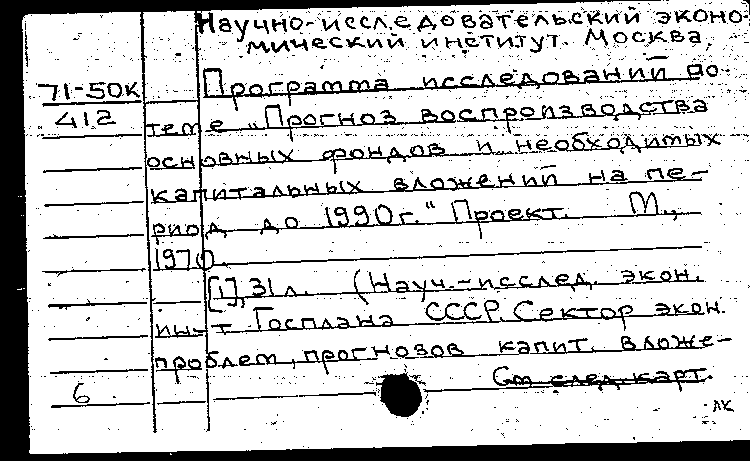 Научно-исследовательский эконо-
мический институт. Москва.
71-50к
412
Программа исследований по
теме „Прогноз воспроизводства
основных фондов и необходимых
капитальных вложений на пе-
риод до 1990г." Проект. М.,
1970.
[1], 31 л. (Науч.-исслед. экон.
ин-т Госплана СССР. Сектор экон.
проблем, прогнозов капит. вложе-
См след. карт.
6
ЛК